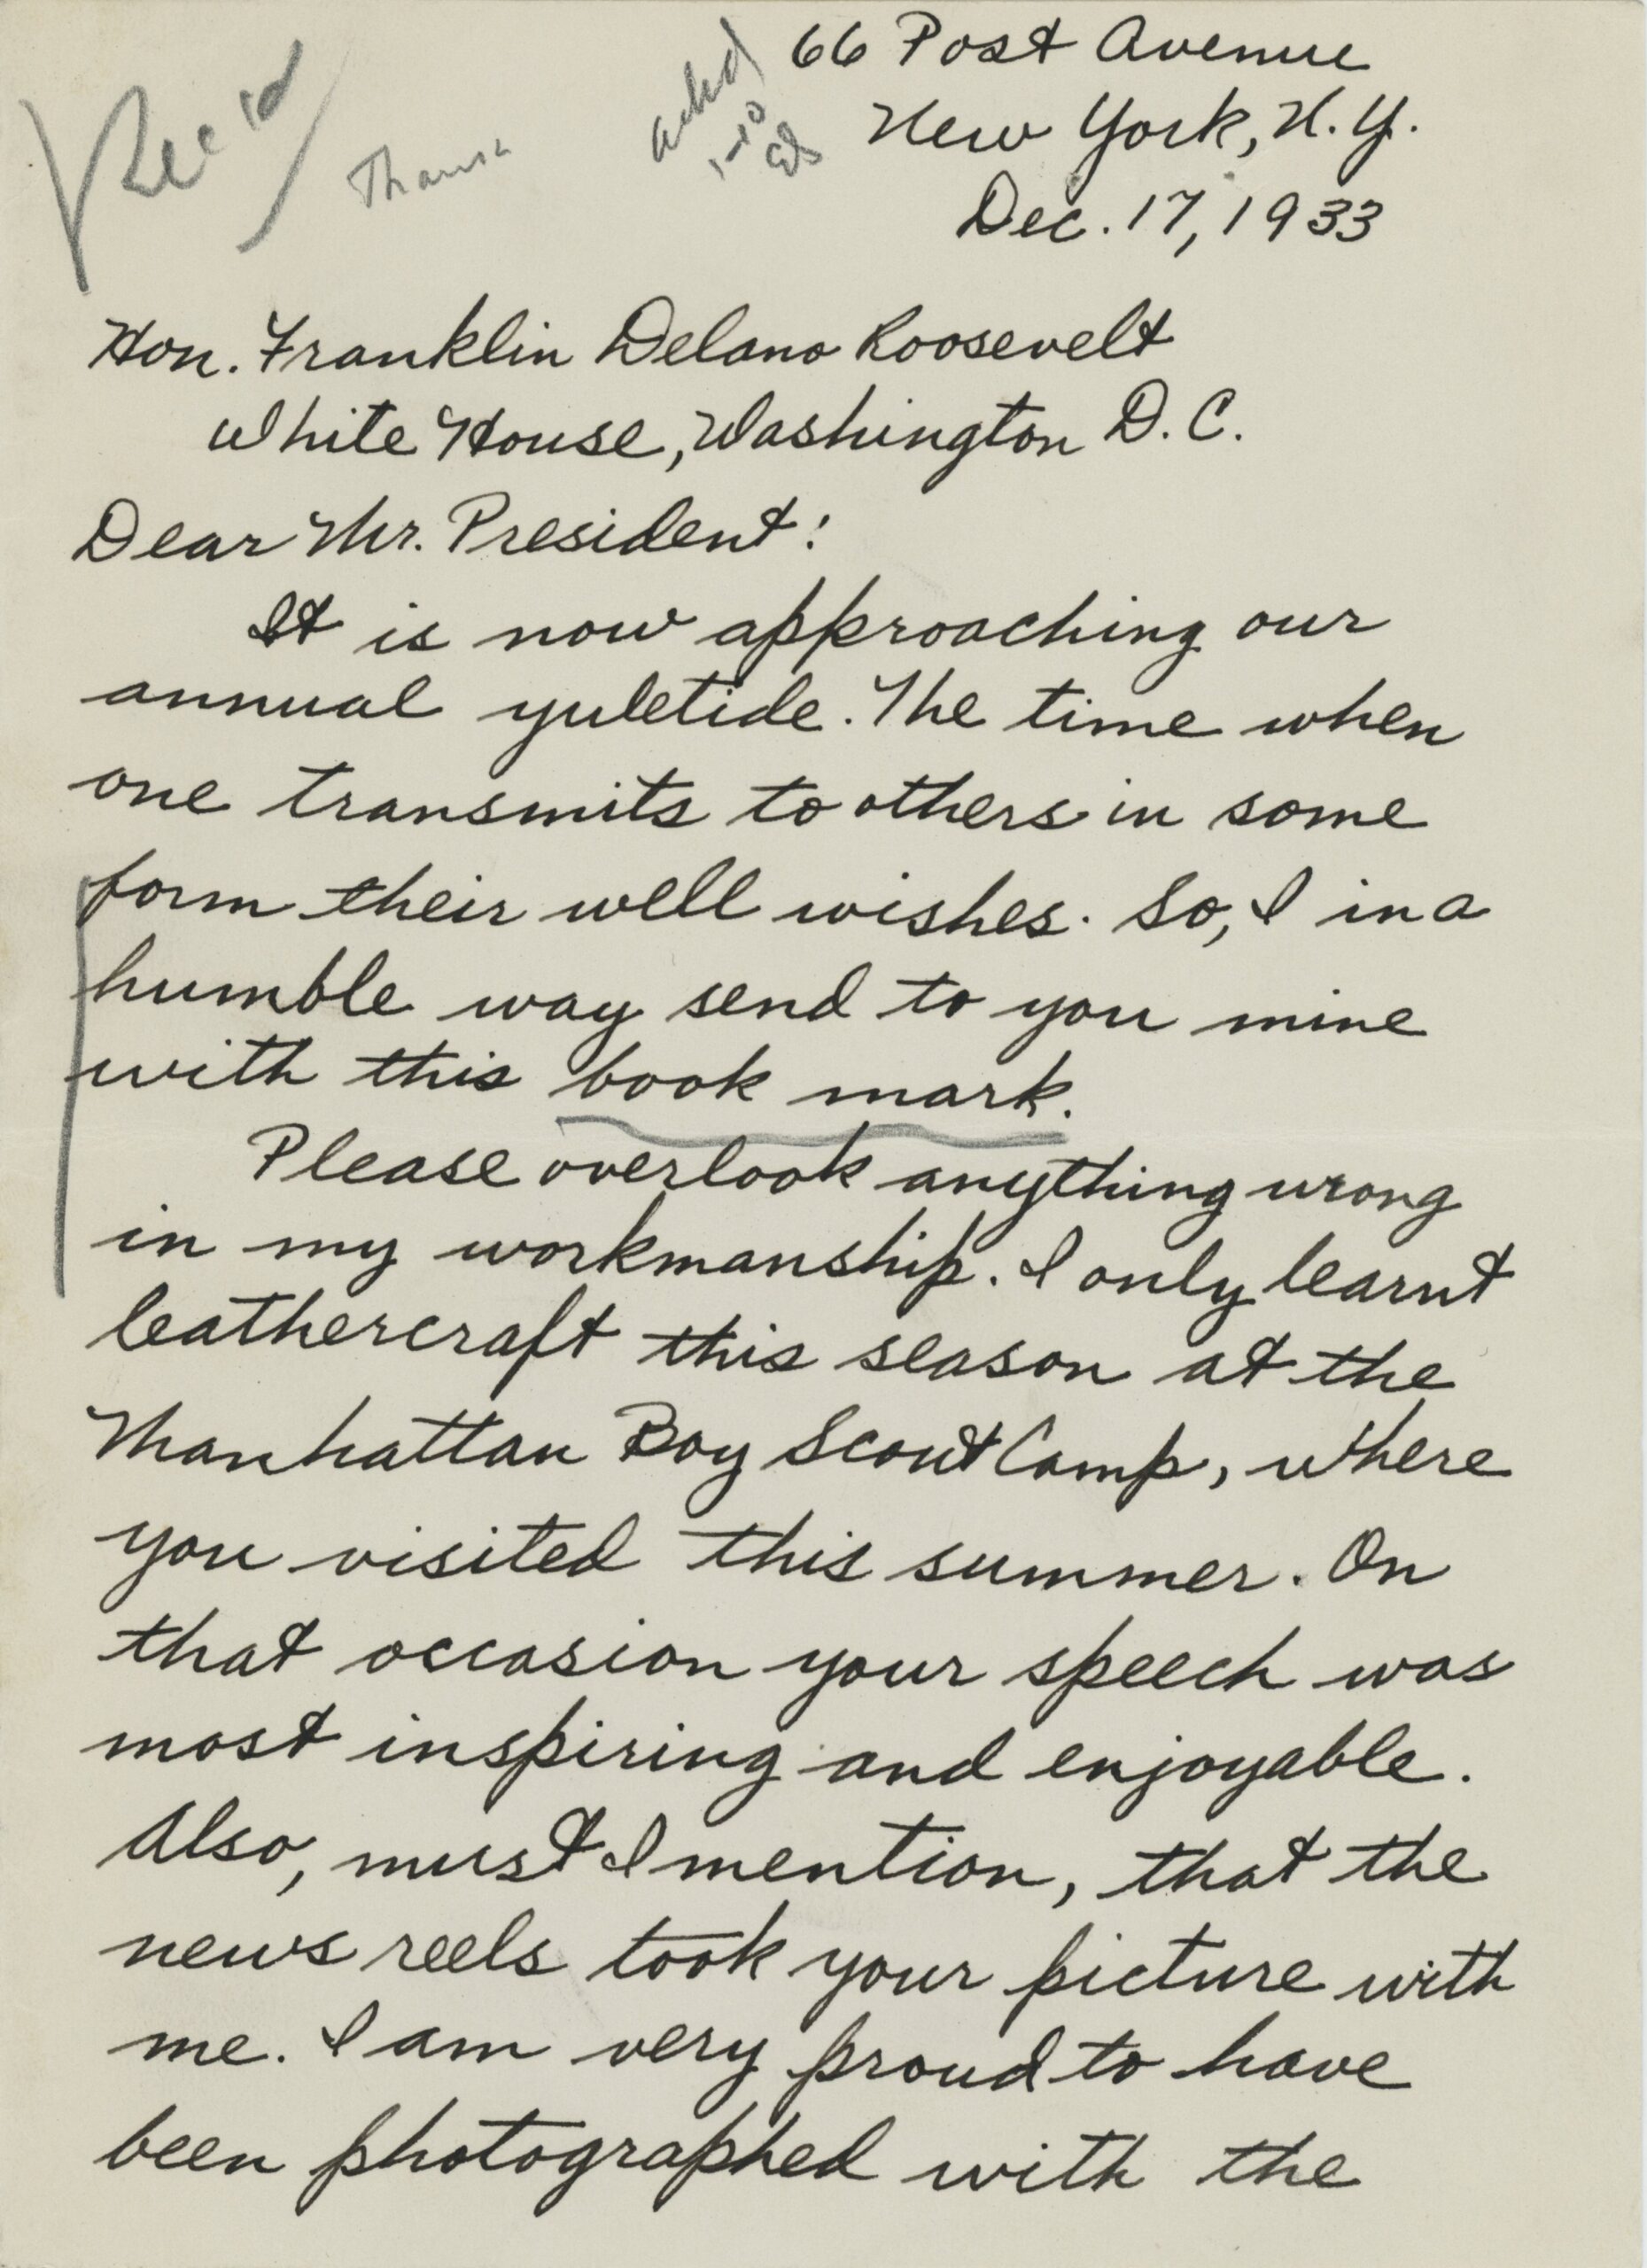 Rec'd
ackd
1-10
66 Post Avenue
New York, N.Y.
Dec. 17, 1933
Hon. Franklin Delano Roosevelt
White House, Washington D.C.
Dear Mr. President:
It is now approaching our
annual yuletide. The time when
one transmits to others in some
form their well wishes. So, I in a
humble way send to you mine
with this book mark.
Please overlook anything wrong
in my workmanship. I only learnt
leathercraft this season at the
Manhattan Boy Scout Camp, where
you visited this summer. On
that occasion your speech was
most inspiring and enjoyable.
Also, must I mention, that the
news reels took your picture with
me. I am very proud to have
been photographed with the